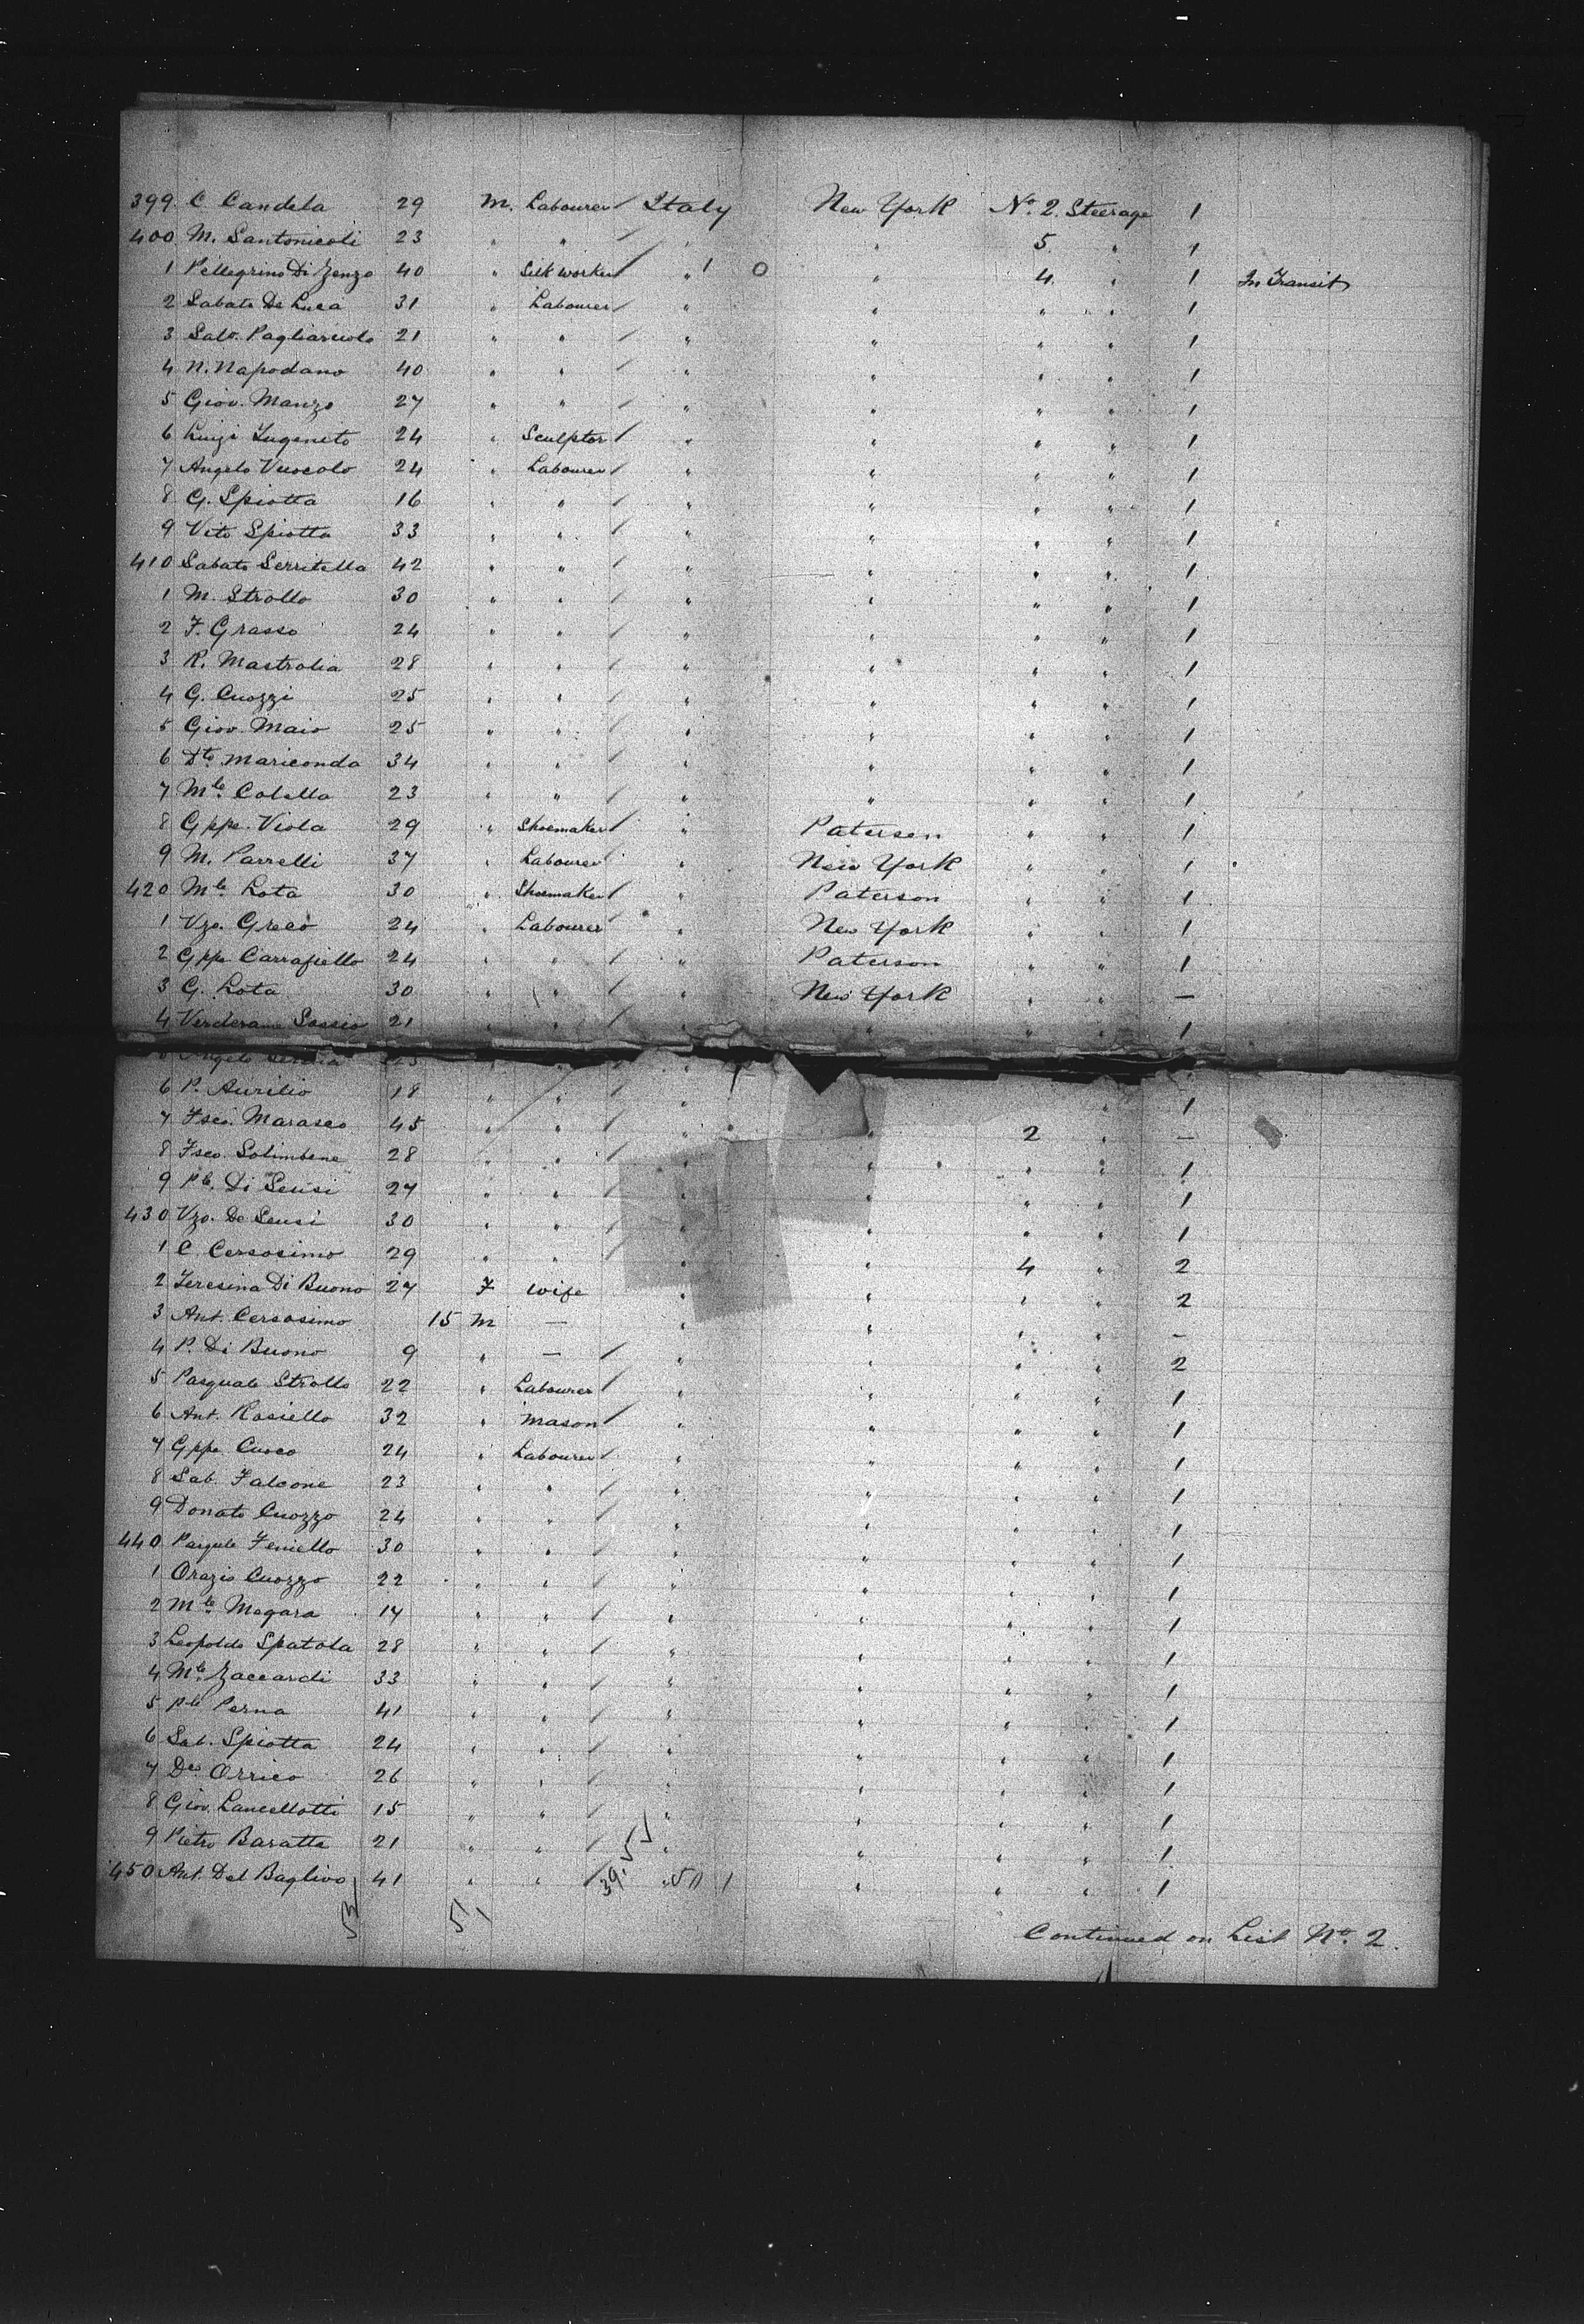 399. C. Candela 29 M. Labourer / Italy New York No. 2. Steerage 1
400 M. Santonicoli 23 " " / " " 5. " 1
1 Pellegrino Di Zenzo 40 " Silk worker / " 1 0 " 4. " 1 In Transit
2 Sabato De Luca 31 " Labourer / " " " " 1
3 Salv. Pagliaruolo 21 " " / " " " " 1
4 N. Napodano 40 " " / " " " " 1
5 Giov. Manzo 27 " " / " " " " 1
6 Luigi 24 " Sculptor / " " " " 1
7 Angelo Vuocolo 24 " Labourer / " " " " 1
8 G. Spiotta 16 " " / " " " " 1
9 Vito Spiotta 33 " " / " " " " 1
410 Sabato Serritella 42 " " / " " " " 1
1 M. Strollo 30 " " / " " " " 1
2 F. Grasso 24 " " / " " " " 1
3 R. Mastrolia 28 " " / " " " " 1
4 G. Cuozzi 25 " " / " " " " 1
5 Giov. Maio 25 " " / " " " " 1
6 Dto. Mariconda 34 " " / " " " " 1
7 Mle. Colella 23 " " / " " " " 1
8 Gppe. Viola 29 " Shoemaker / " Paterson " " 1
9 M. Parrelli 37 " Labourer " New York " " 1
420 Mle Lota 30 " Shoemaker / " Paterson " " 1
1 Vzo. Greco 24 " Labourer " New York " " 1
2 Gppe Carrafiello 24 " " / " Paterson " " 1
3 G. Lota 30 " " / " New York " " —
4 Verderame Sossio 21 " " / " " " " 1
Angelo
6 P. Aurilio 18 " " / " " 1
7 Fsco. Marasco 45 " " / " " 2 " —
8 Fsco. Solimbene 28 " " / " " " " 1
9 Ple. Di Sensi 27 " " / " " " 1
430 Vzo. De Sensi 30 " " / " " " " 1
1 C. Cersosimo 29 " " / " " 4 " 2
2 Teresina Di Buono 27 F wife " " " " 2
3 Ant. Cersosimo 15 M — " " " " —
4 P. Di Buono 9 " — / " " " " 2
5 Pasquale Strollo 22 " Labourer / " " " " 1
6 Ant. Rosiello 32 " Mason / " " " " 1
7 Gppe Cuoco 24 " Labourer / " " " " 1
8 Sab. Falcone 23 " " / " " " " 1
9 Donato Cuozzo 24 " " / " " " " 1
440 Pasqule Feniello 30 " " / " " " " 1
1 Orazio Cuozzo 22 " " / " " " " 1
2 Mle Magara 17 " " / " " " " 1
3 Leopoldo Spatola 28 " " / " " " " 1
4 Mle. Zaccardi 33 " " / " " " " 1
5 Ple Perna 41 " " / " " " " 1
6 Sab. Spiotta 24 " " / " " " " 1
7 Dco Orrico 26 " " / " " " " 1
8 Giov. Lancellotti 15 " " / " " " " 1
9 Pietro Baratta 21 " " / " " " " 1
450 Ant. Del Baglivo 41 " " / " " " " 1
51
Continued on List No. 2.